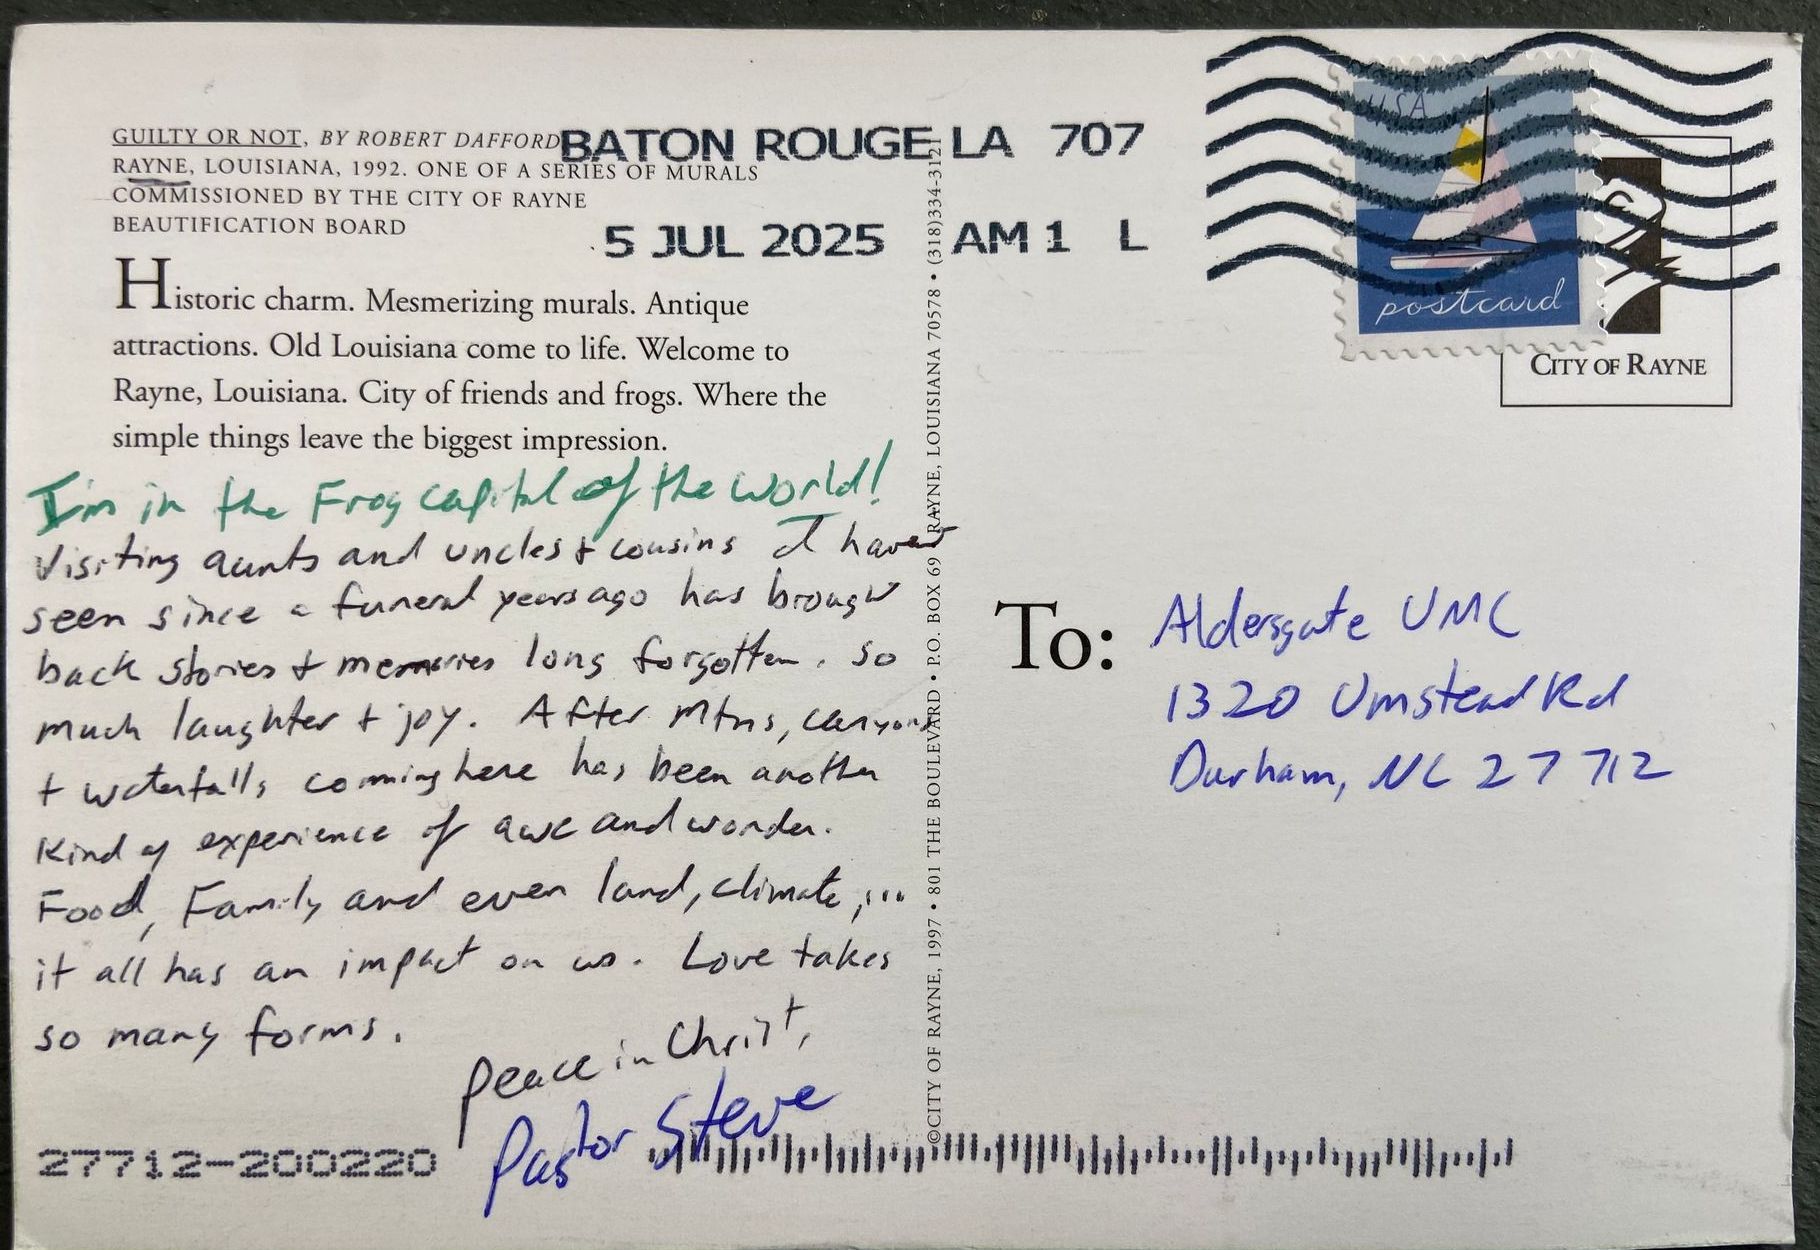 GUILTY OR NOT, BY ROBERT DAFFORD
RAYNE, LOUISIANA, 1992. ONE OF A SERIES OF MURALS
COMMISSIONED BY THE CITY OF RAYNE
BEAUTIFICATION BOARD
BATON ROUGE LA 707
5 JUL 2025 AM 1 L
USA
postcard
CITY OF RAYNE
Historic charm. Mesmerizing murals. Antique
attractions. Old Louisiana come to life. Welcome to
Rayne, Louisiana. City of friends and frogs. Where the
simple things leave the biggest impression.
I'm in the Frog capital of the world!
Visiting aunts and uncles + cousins I haven't
seen since a funeral years ago has brought
back stories + memories long forgotten. So
much laughter + joy. After Mtns, canyons
+ waterfalls coming here has been another
kind of experience of awe and wonder.
Food, Family and even land, climate, ...
it all has an impact on us. Love takes
so many forms.
Peace in Christ,
Pastor Steve
©CITY OF RAYNE, 1997 • 801 THE BOULEVARD • P.O. BOX 69 RAYNE, LOUISIANA 70578 • (318)334-3121
To:
Aldersgate UMC
1320 Umstead Rd
Durham, NC 27712
27712-200220